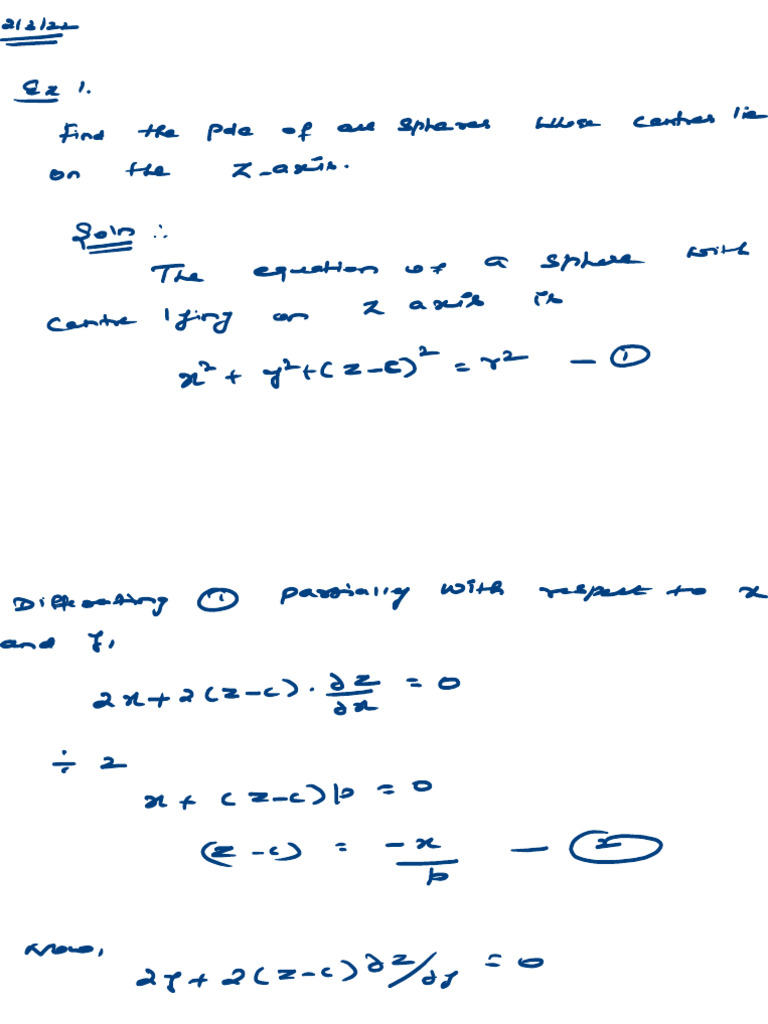 2/2/22
Ex 1.
Find the pde of all spheres whose centres lie
on the Z-axis.
Soln :
The equation of a sphere with
centre lying on z axis is
x² + y² + (z-c)² = r² — ①
Differenting ① partially with respect to x
and y,
2x + 2(z-c) . ∂z/∂x = 0
÷ 2
x + (z-c) p = 0
(z-c) = -x/p — ②
Now,
2y + 2(z-c) ∂z/∂y = 0